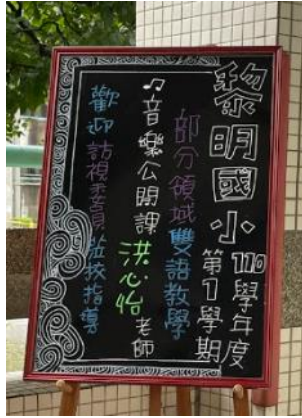 黎明國小
110學年度
第1學期
部分領域雙語教學
♫音樂公開課
洪心怡老師
歡迎訪視委員蒞校指導